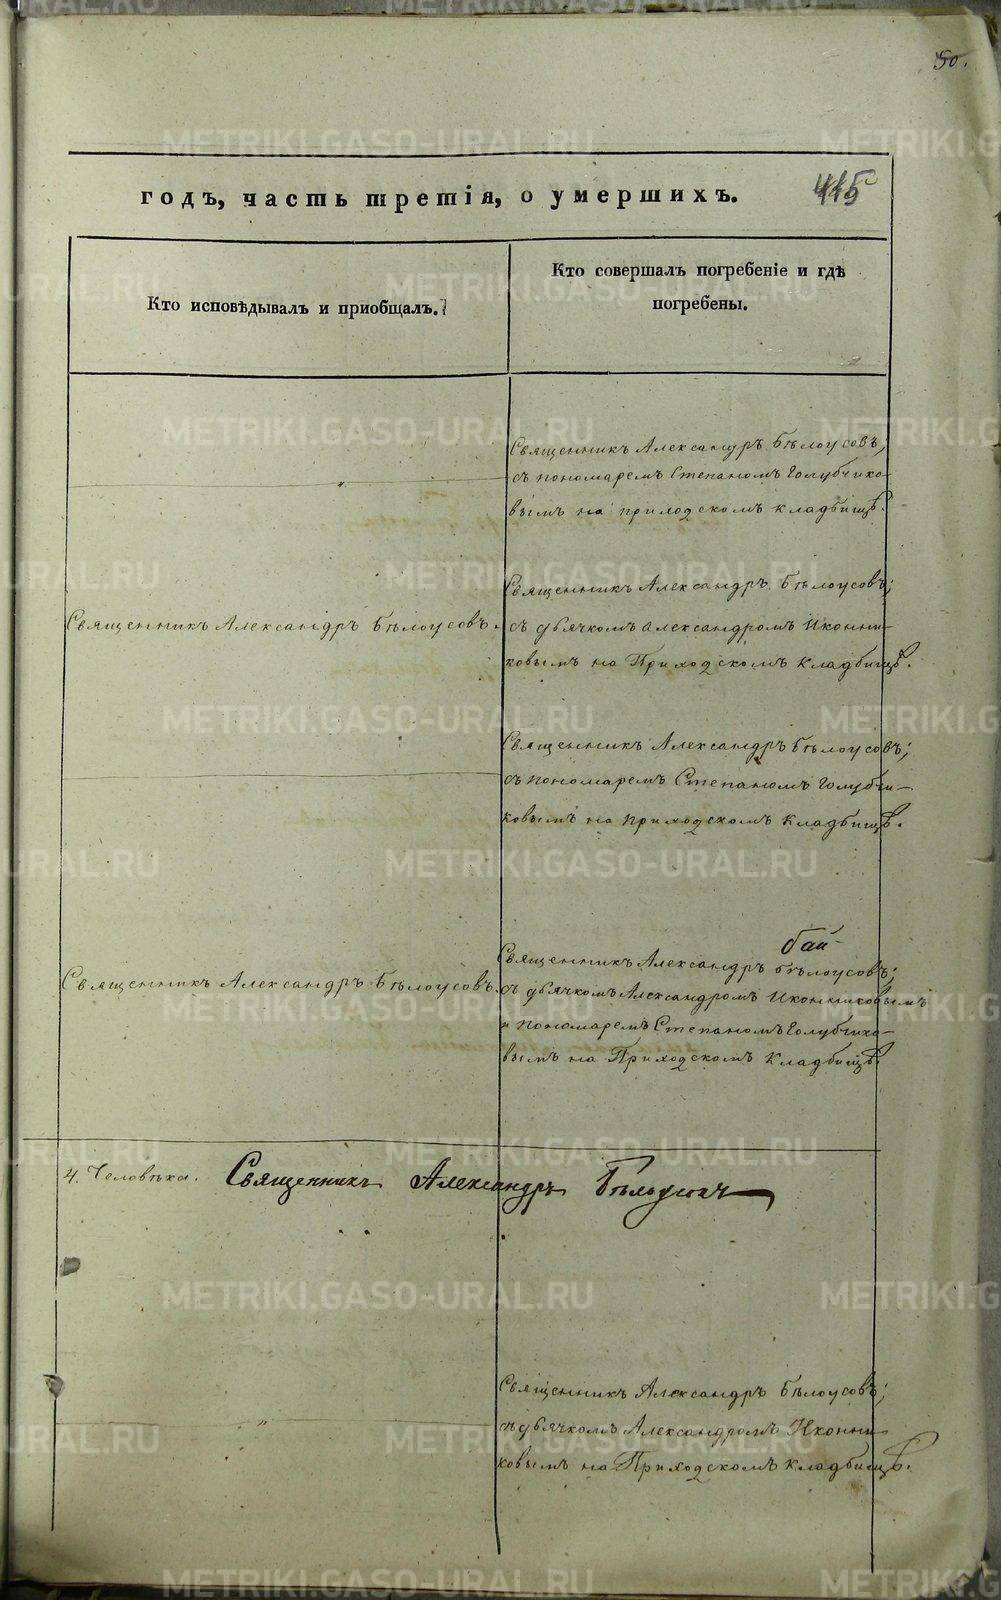 50.
годъ, часть третія, о умершихъ.
415
Кто исповѣдывалъ и пріобщалъ.
Кто совершалъ погребеніе и гдѣ
погребены.
Священникъ Александръ Бѣлоусовъ;
съ пономаремъ Степаномъ Голубчико-
вымъ на приходскомъ кладбищѣ.
Священникъ Александръ Бѣлоусовъ.
Священникъ Александръ Бѣлоусовъ;
съ дьячкомъ Александромъ Иконни-
ковымъ на Приходскомъ кладбищѣ.
Священникъ Александръ Бѣлоусовъ;
съ пономаремъ Степаномъ Голубчи-
ковымъ на приходскомъ кладбищѣ.
бай-
Священникъ Александръ Бѣлоусовъ.
Священникъ Александръ Бѣлоусовъ;
съ дьячкомъ Александромъ Иконниковымъ
и пономаремъ Степаномъ Голубчико-
вымъ на Приходскомъ кладбищѣ.
4. Человѣка. Священникъ Александръ Бѣлоусовъ
Священникъ Александръ Бѣлоусовъ;
съ дьячкомъ Александромъ Иконни-
ковымъ на Приходскомъ кладбищѣ.
METRIKI.GASO-URAL.RU